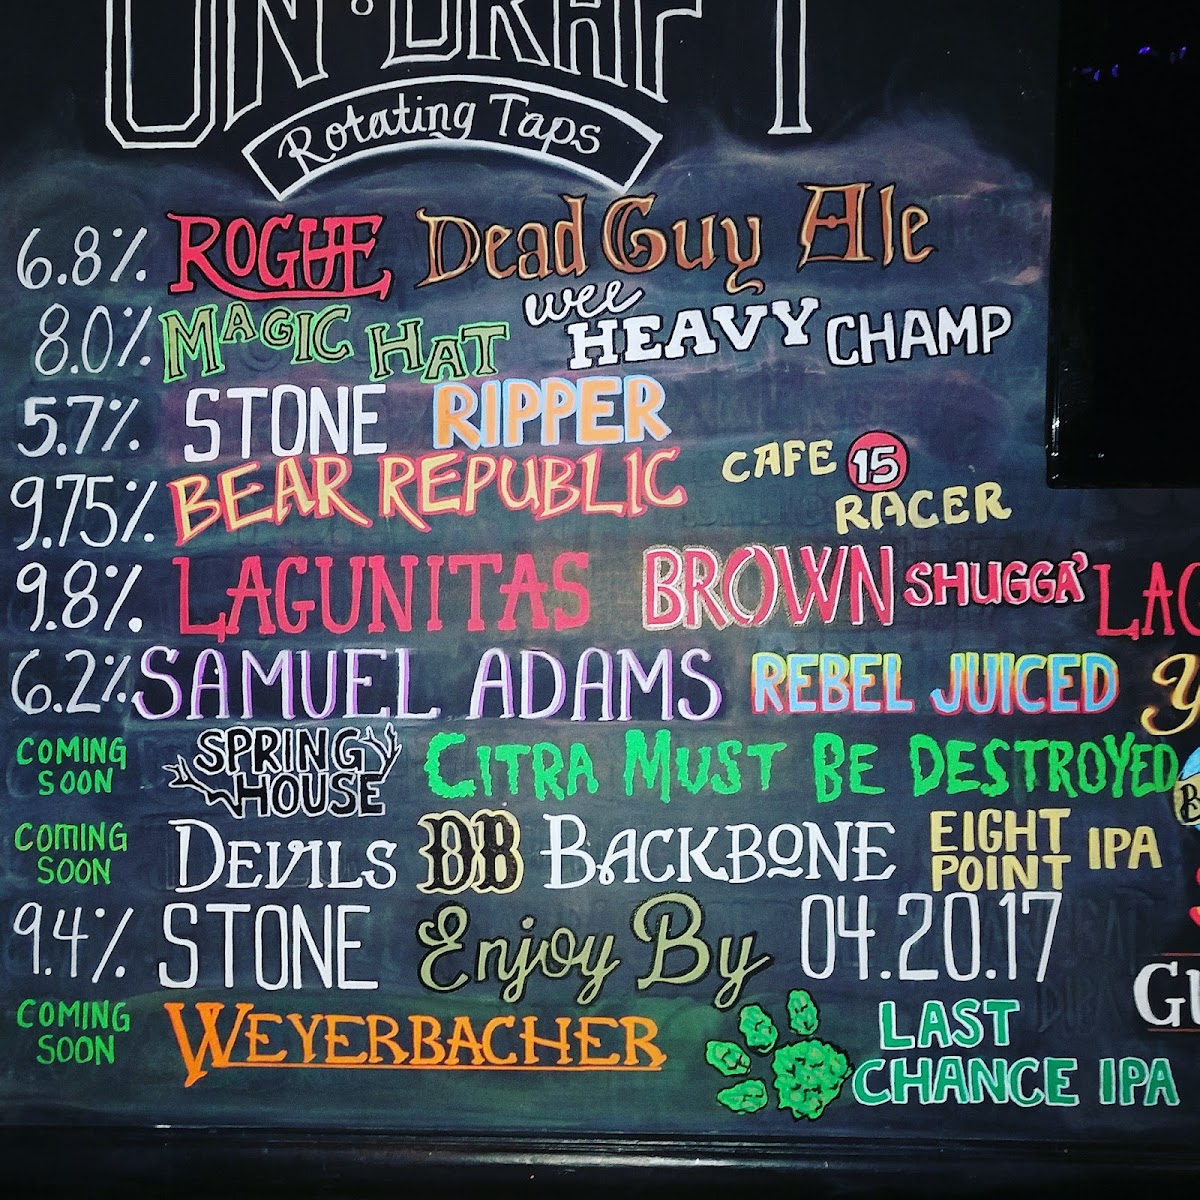 ON DRAFT
Rotating Taps
6.8% ROGUE Dead Guy Ale
8.0% MAGIC HAT wee HEAVY CHAMP
5.7% STONE RIPPER
9.75% BEAR REPUBLIC CAFE 15 RACER
9.8% LAGUNITAS BROWN SHUGGA'
6.2% SAMUEL ADAMS REBEL JUICED
COMING SOON SPRING HOUSE CITRA MUST BE DESTROYED
COMING SOON DEVILS DB BACKBONE EIGHT POINT IPA
9.4% STONE Enjoy By 04.20.17
COMING SOON WEYERBACHER LAST CHANCE IPA